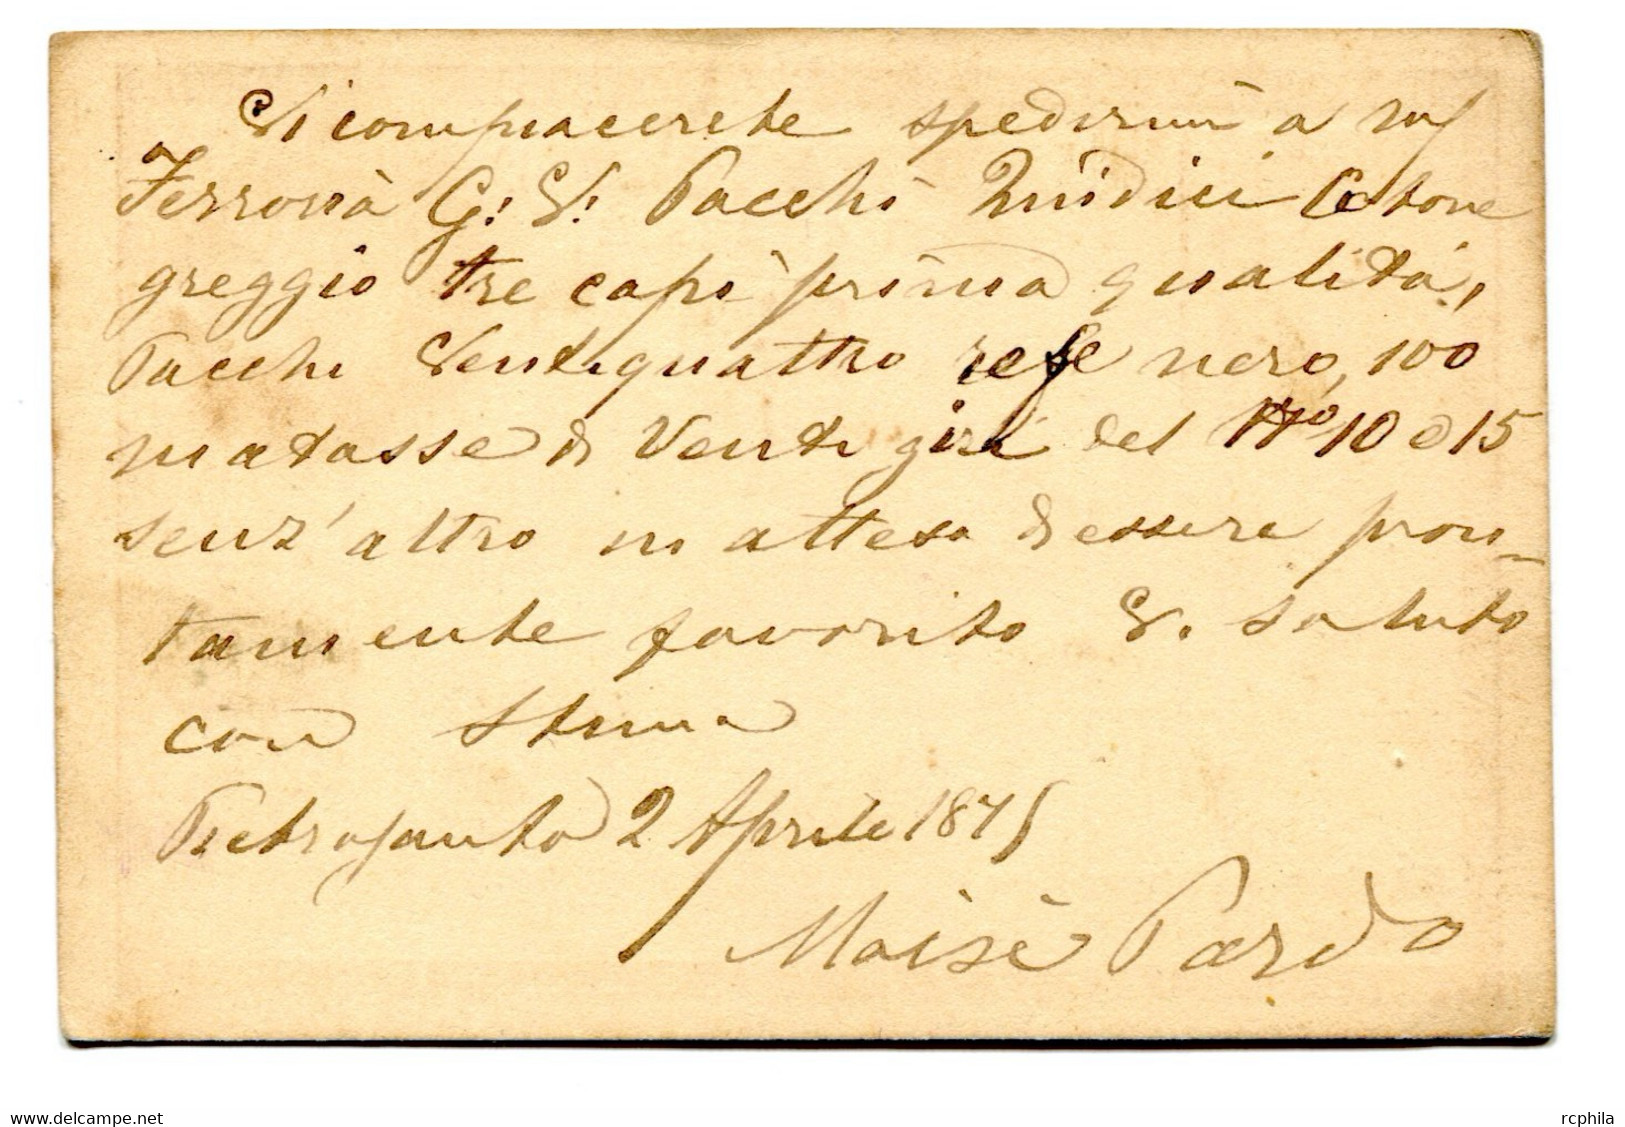 Vi compiacerete spedirmi a mf
Ferrovià G. V. Pacchi Quidici Cotone
greggio tre capi prima qualità,
Pacchi Ventiquattro refe nero, 100
matasse di Venti giri del No 10 e 15
senz'altro in attesa di essere pron-
tamente favorito V. saluto
con stima
Pietrasanta 2 Aprile 1875
Moisè Pardo
rcphila